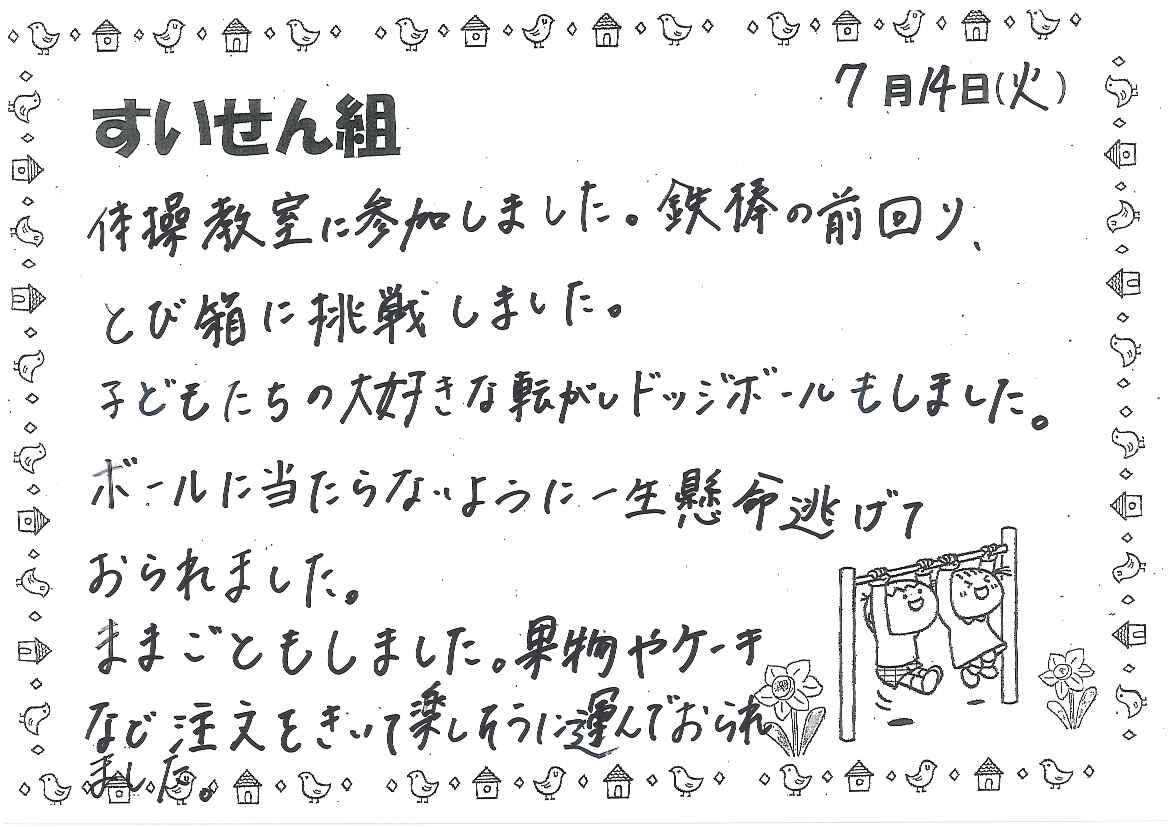 7月14日(火)
すいせん組
体操教室に参加しました。鉄棒の前回り、
とび箱に挑戦しました。
子どもたちの大好きな転がしドッジボールもしました。
ボールに当たらないように一生懸命逃げて
おられました。
ままごともしました。果物やケーキ
など注文をきいて楽しそうに運んでおられ
ました。